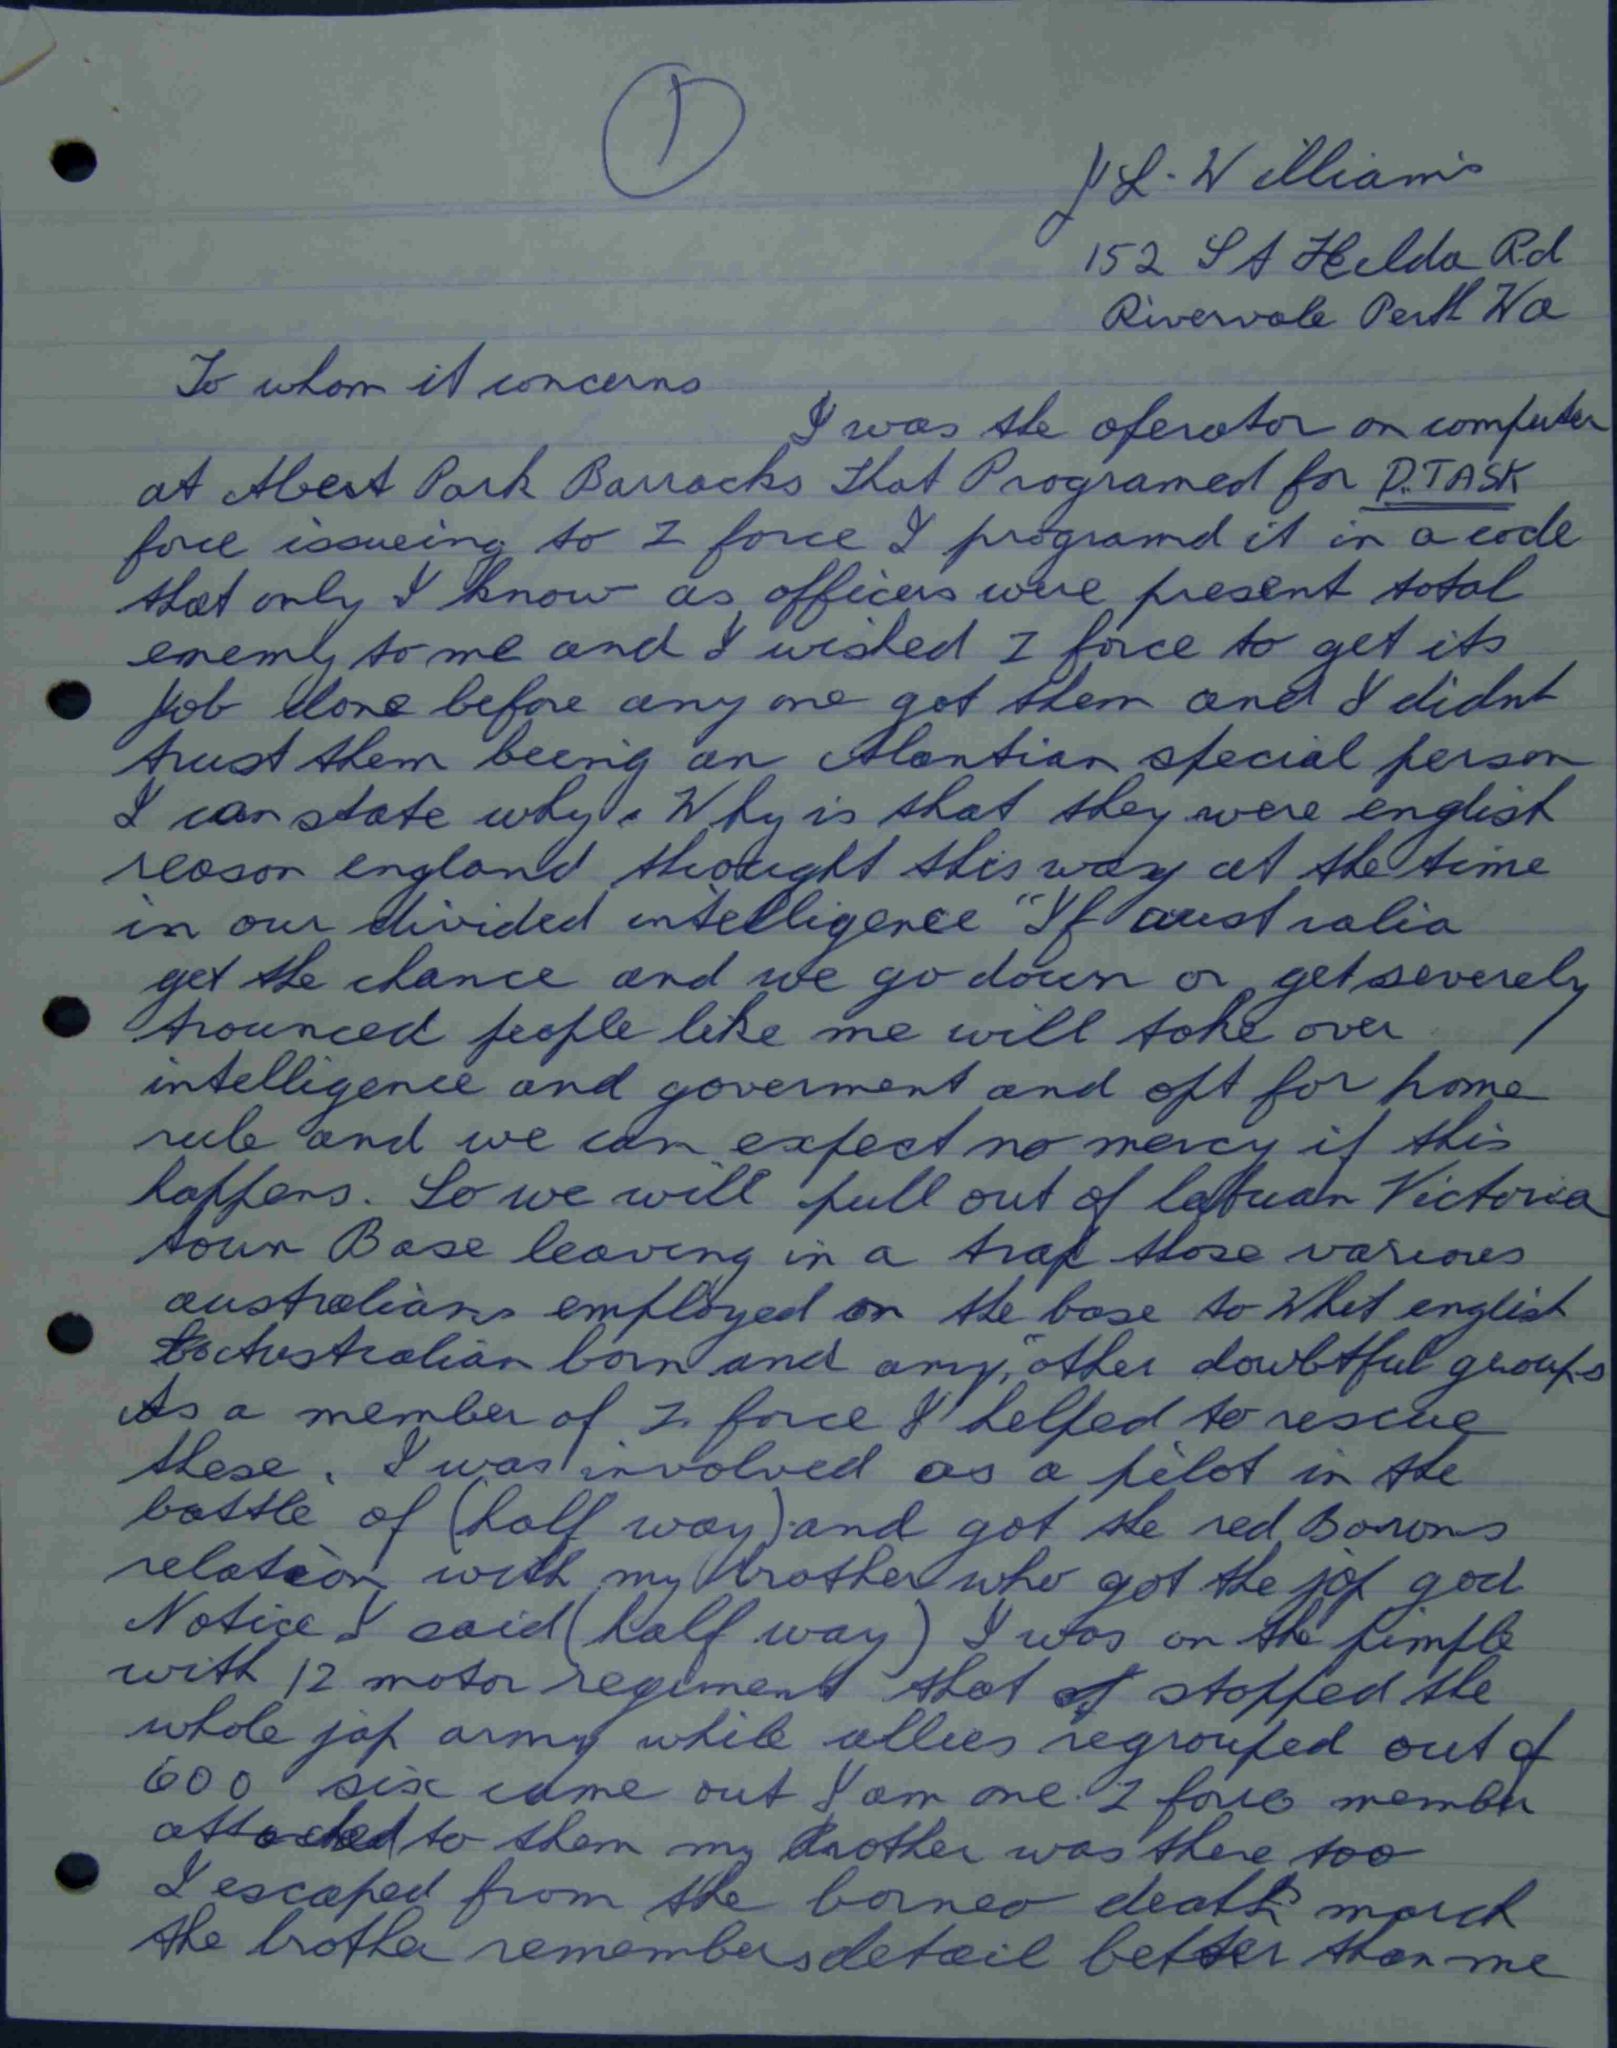 1
J L. Williams
152 St Helda Rd
Rivervale Perth Wa
To whom it concerns
I was the operator on computer
at Abert Park Barracks that Programed for D.TASK
force issueing to Z force I programd it in a code
that only I know as officers were present total
enemy to me and I wished Z force to get its
job done before any one got them and I didnt
trust them being an Alantian special person
I can state why. Why is that they were english
reason england thought this way at the time
in our divided intelligence "If australia
get the chance and we go down or get severely
trounced people like me will take over
intelligence and goverment and opt for home
rule and we can expect no mercy if this
happens. So we will pull out of labuan Victoria
town Base leaving in a trap those various
australians employed on the base to Whit english
Australian born and any," other doubtful groups
As a member of Z force I helped to rescue
these. I was involved as a pilot in the
battle of (half way) and got the red Barons
relation with my brother who got the jap god
Notice I said (half way) I was on the pimple
with 12 motor regiment that stopped the
whole jap army while allies regrouped out of
600 six came out I am one Z force member
attached to them my brother was there too
I escaped from the borneo death march
the brother remembers detail better than me